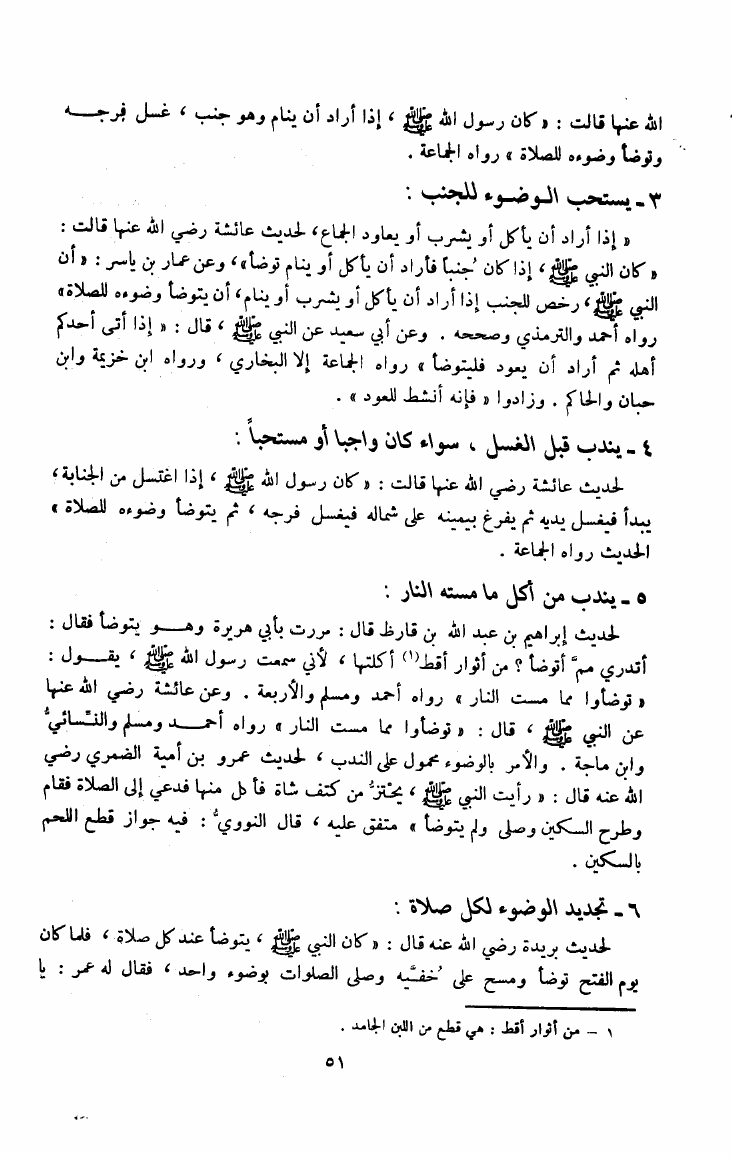 الله عنها قالت : « كان رسول الله ﷺ ، إذا أراد أن ينام وهو جنب ، غسل فرجـــه
وتوضأ وضوءه للصلاة » رواه الجماعة .
٣ ـ يستحب الـوضـوء للجنب :
« إذا أراد أن يأكل أو يشرب أو يعاود الجماع، لحديث عائشة رضي الله عنها قالت :
« كان النبي ﷺ ، إذا كان جُنباً فأراد أن يأكل أو ينام توضأ»، وعن عمار بن ياسر : « أن
النبي ﷺ، رخص للجنب إذا أراد أن يأكل أو يشرب أو ينام، أن يتوضأ وضوءه للصلاة»
رواه أحمد والترمذي وصححه . وعن أبي سعيد عن النبي ﷺ ، قال : « إذا أتى أحدكم
أهله ثم أراد أن يعود فليتوضأ » رواه الجماعة إلا البخاري ، ورواه ابن خزيمة وابن
حبان والحاكم . وزادوا « فإنه أنشط للعود » .
٤ ـ يندب قبل الغسل ، سواء كان واجبا أو مستحباً :
لحديث عائشة رضي الله عنها قالت : « كان رسول الله ﷺ ، إذا اغتسل من الجنابة،
يبدأ فيغسل يديه ثم يفرغ بيمينه على شماله فيغسل فرجه ، ثم يتوضأ وضوءه للصلاة »
الحديث رواه الجماعة .
٥ ـ يندب من أكل ما مسته النار :
لحديث إبراهيم بن عبد الله بن قارظ قال : مررت بأبي هريرة وهـــو يتوضأ فقال :
أتدري ممَّ أتوضأ ؟ من أثوار أقط(١) أكلتها ، لأني سمعت رسول الله ﷺ ، يقـــول :
« توضأوا مما مست النار » رواه أحمد ومسلم والأربعة . وعن عائشة رضي الله عنها
عن النبي ﷺ ، قال : « توضأوا مما مست النار » رواه أحـــمد ومسلم والنَّسائيُّ
وابن ماجة . والأمر بالوضوء محمول على الندب ، لحديث عمرو بن أمية الضمري رضي
الله عنه قال : « رأيت النبي ﷺ ، يحْتزُّ من كتف شاة فأكل منها فدعي إلى الصلاة فقام
وطرح السكين وصلى ولم يتوضأ » متفق عليه ، قال النوويُّ : فيه جواز قطع اللحم
بالسكين .
٦ ـ تجديد الوضوء لكل صلاة :
لحديث بريدة رضي الله عنه قال : « كان النبي ﷺ ، يتوضأ عند كل صلاة ، فلما كان
يوم الفتح توضأ ومسح على خُفَّيه وصلى الصلوات بوضوء واحد ، فقال له عمر : يا
١ – من أثوار أقط : هي قطع من اللبن الجامد .
٥١